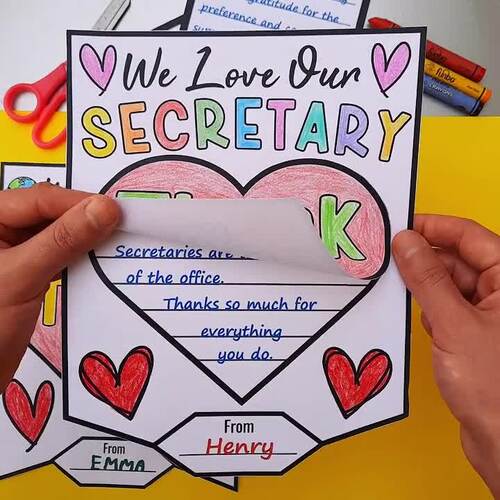 gratitude for the
preference and
We Love Our
SECRETARY
Secretaries are
of the office.
Thanks so much for
everything
you do.
From
Henry
From
EMMA